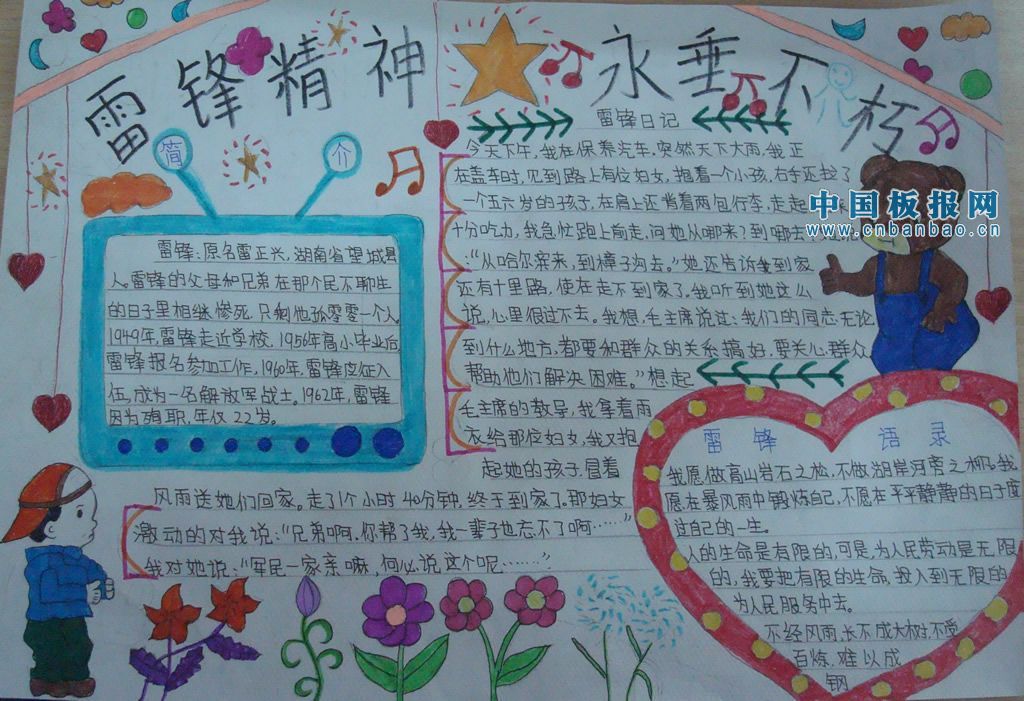 雷锋精神
永垂不朽
简介
雷锋:原名雷正兴,湖南省望城县
人。雷锋的父母和兄弟在那个民不聊生
的日子里相继惨死,只剩他孤零零一个人。
1949年,雷锋走近学校,1956年高小毕业后,
雷锋报名参加工作,1960年,雷锋应征入
伍,成为一名解放军战士。1962年,雷锋
因为殉职,年仅22岁。
雷锋日记
今天下午,我在保养汽车,突然天下大雨,我正
在盖车时,见到路上有位妇女,抱着一个小孩,右手还拉了
一个五六岁的孩子,在肩上还背着两包行李,走起
十分吃力,我急忙跑上前走,问她从哪来?到哪去?
:“从哈尔滨来,到樟子沟去。”她还告诉我到家
还有十里路,使在走不到家了。我听到她这么
说,心里很过不去。我想,毛主席说过:我们的同志,无论
到什么地方,都要和群众的关系搞好,要关心群众,
帮助他们解决困难。”想起
毛主席的教导,我拿着雨
衣给那位妇女,我又抱
起她的孩子,冒着
风雨送她们回家。走了1个小时40分钟,终于到家了,那妇女
激动的对我说:“兄弟啊,你帮了我,我一辈子也忘不了啊……”
我对她说:“军民一家亲嘛,何必说这个呢……”
中国板报网
www.cnbanbao.cn
雷锋语录
我愿做高山岩石之松,不做湖岸河旁之柳。我
愿在暴风雨中锻炼自己,不愿在平平静静的日子度
过自己的一生。
人的生命是有限的,可是,为人民劳动是无限
的,我要把有限的生命,投入到无限的
为人民服务中去。
不经风雨,长不成大树,不受
百炼,难以成
钢